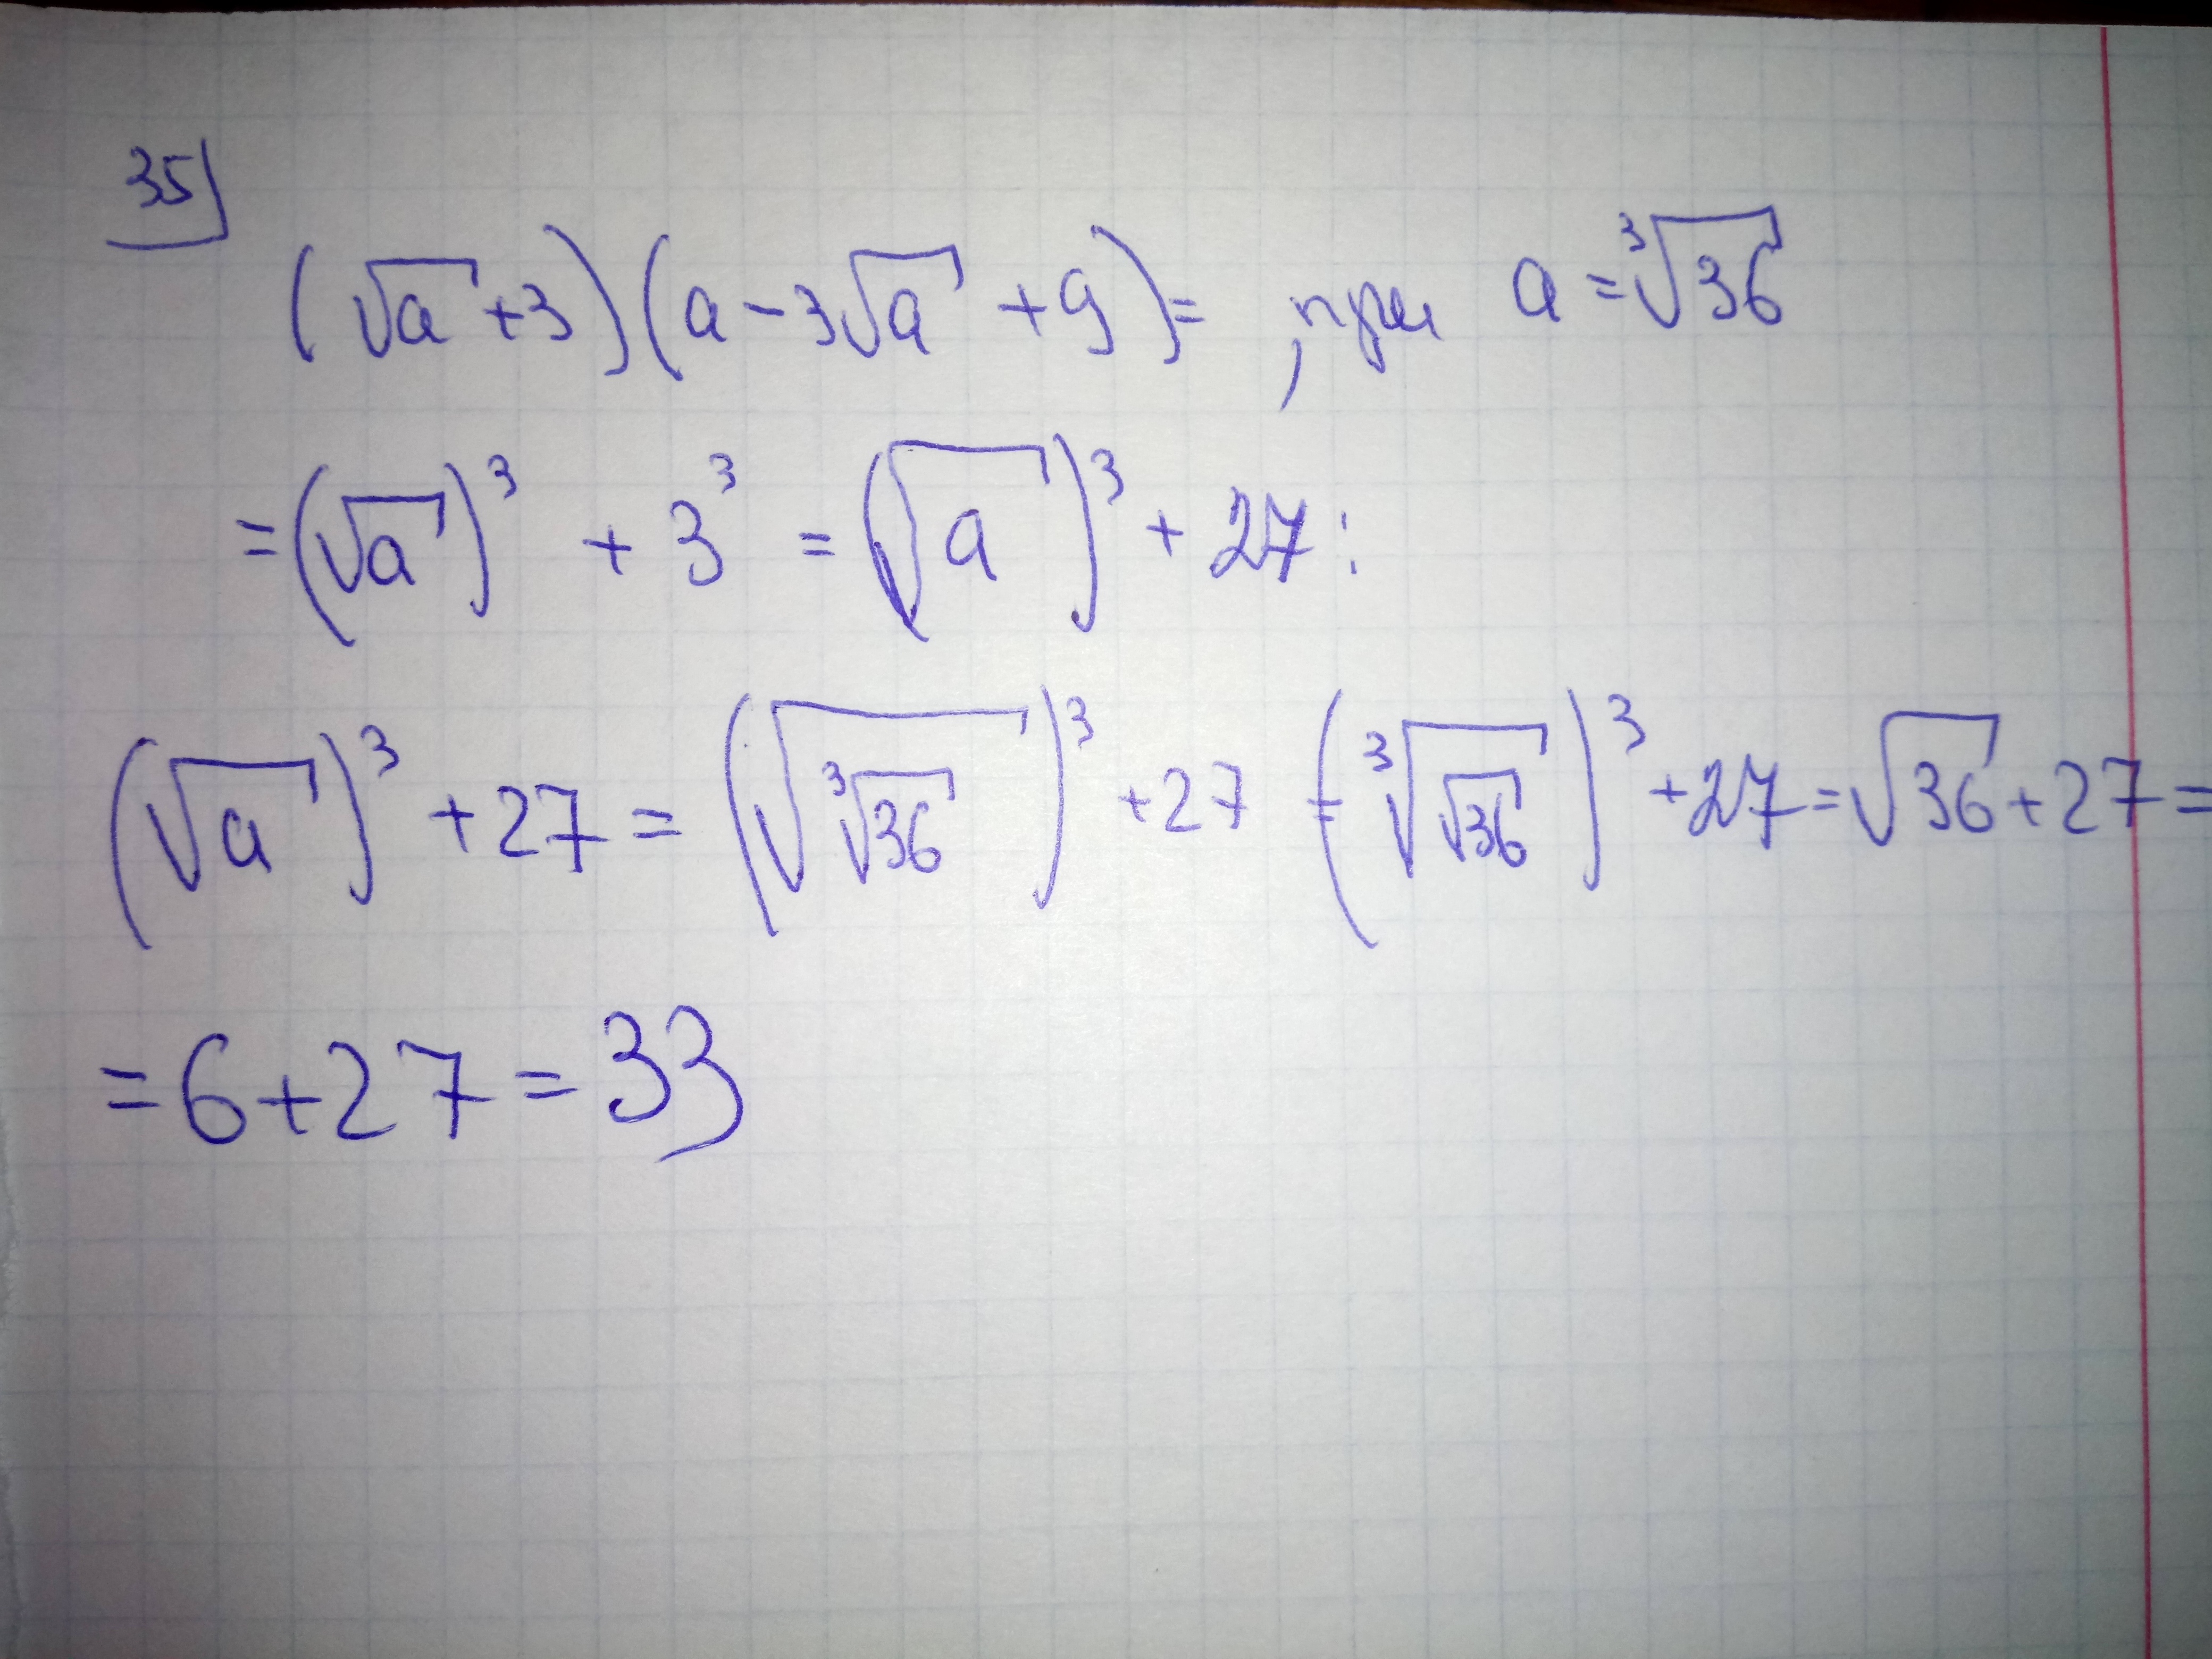 35)
(√a + 3)(a - 3√a + 9) = , при a = ∛36
= (√a)³ + 3³ = (√a)³ + 27 :
(√a)³ + 27 = (√∛36)³ + 27 = (∛√36)³ + 27 = √36 + 27 =
= 6 + 27 = 33